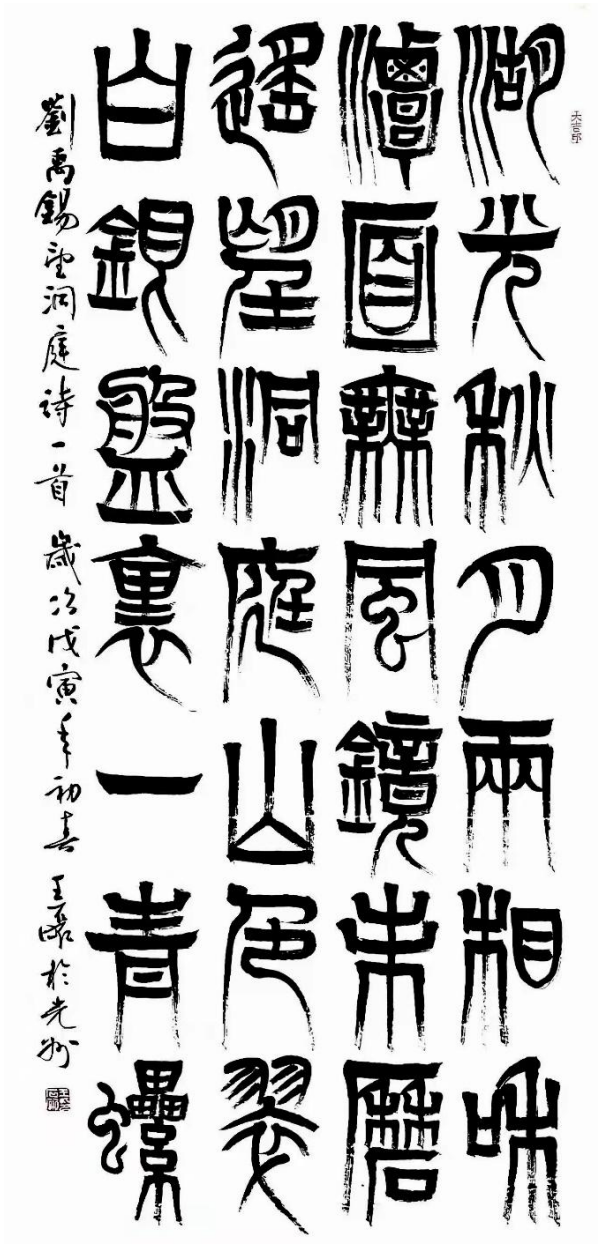 大吉印
湖光秋月兩相和
潭面無風鏡未磨
遙望洞庭山色翠
白銀盤裏一青螺
劉禹錫望洞庭詩一首 歲次戊寅年初春 王 於光州